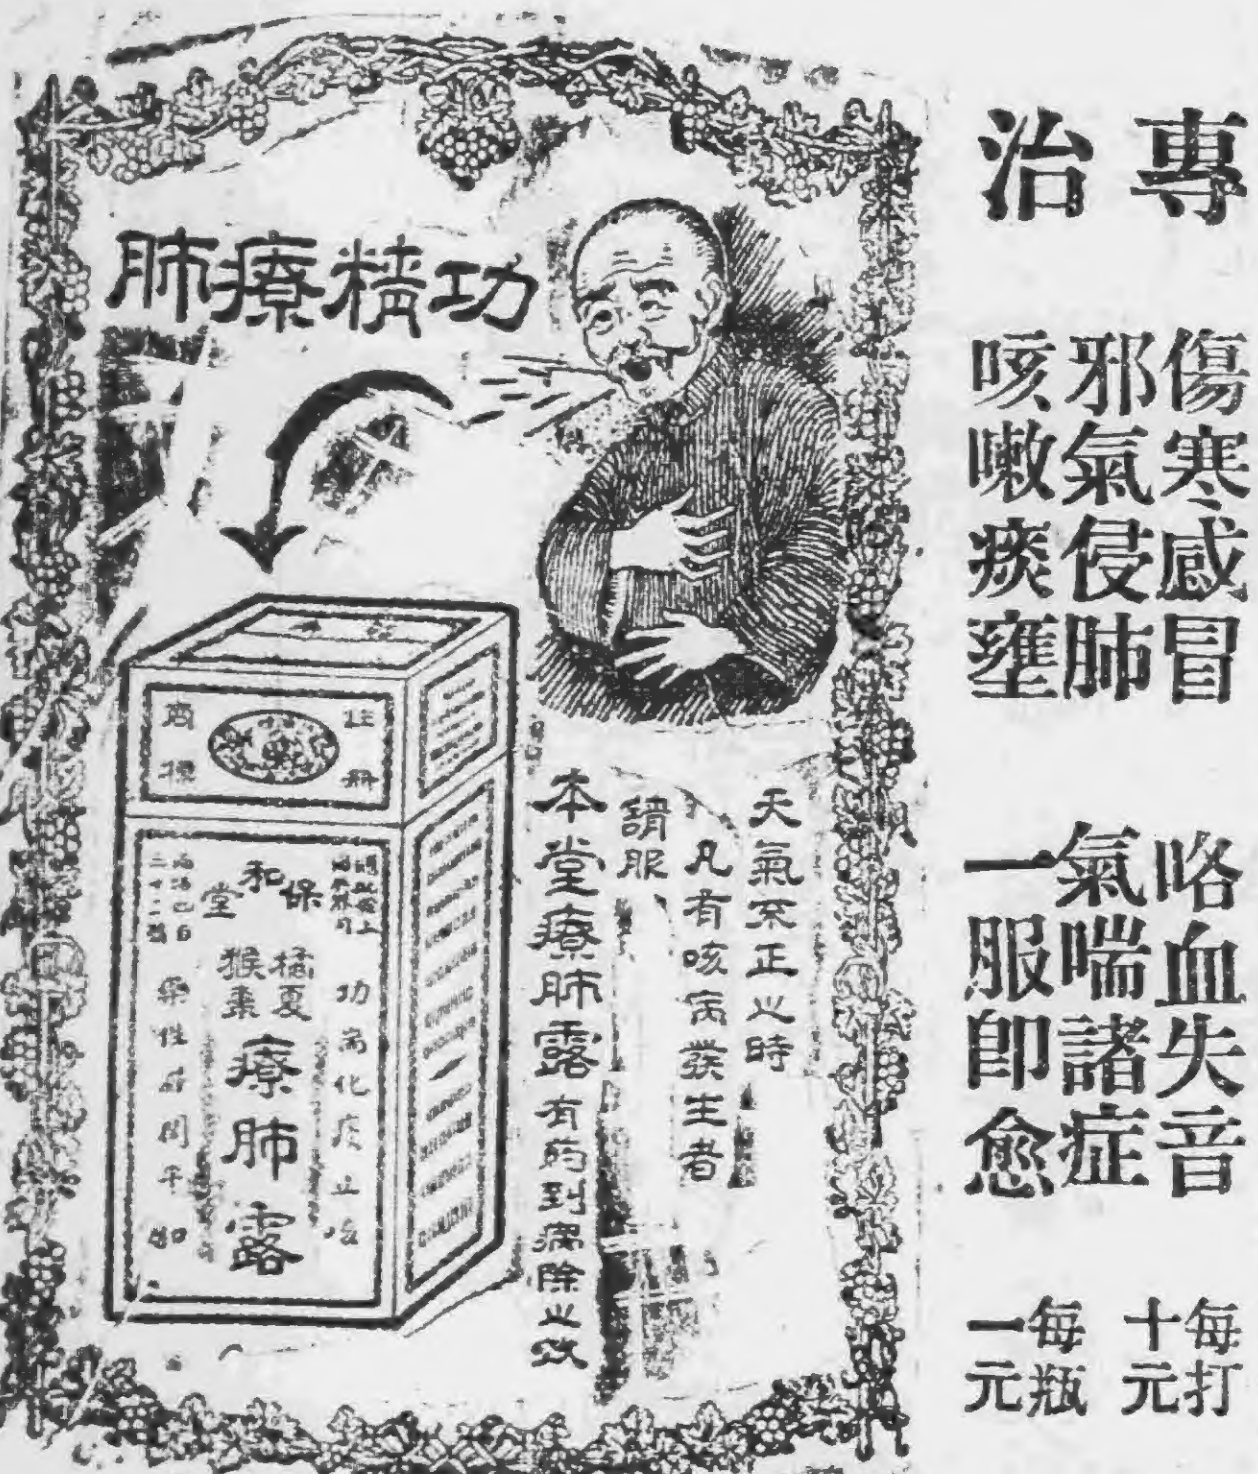 專治
傷寒感冒
邪氣侵肺
咳嗽痰壅
咯血失音
氣喘諸症
一服即愈
每打十元
每瓶一元
功精療肺
天氣不正之時
凡有咳病發生者
請服
本堂療肺露有药到病除之效
註冊
商標
保和堂
橘夏
猴棗
療肺露
功高化痰止咳
藥性